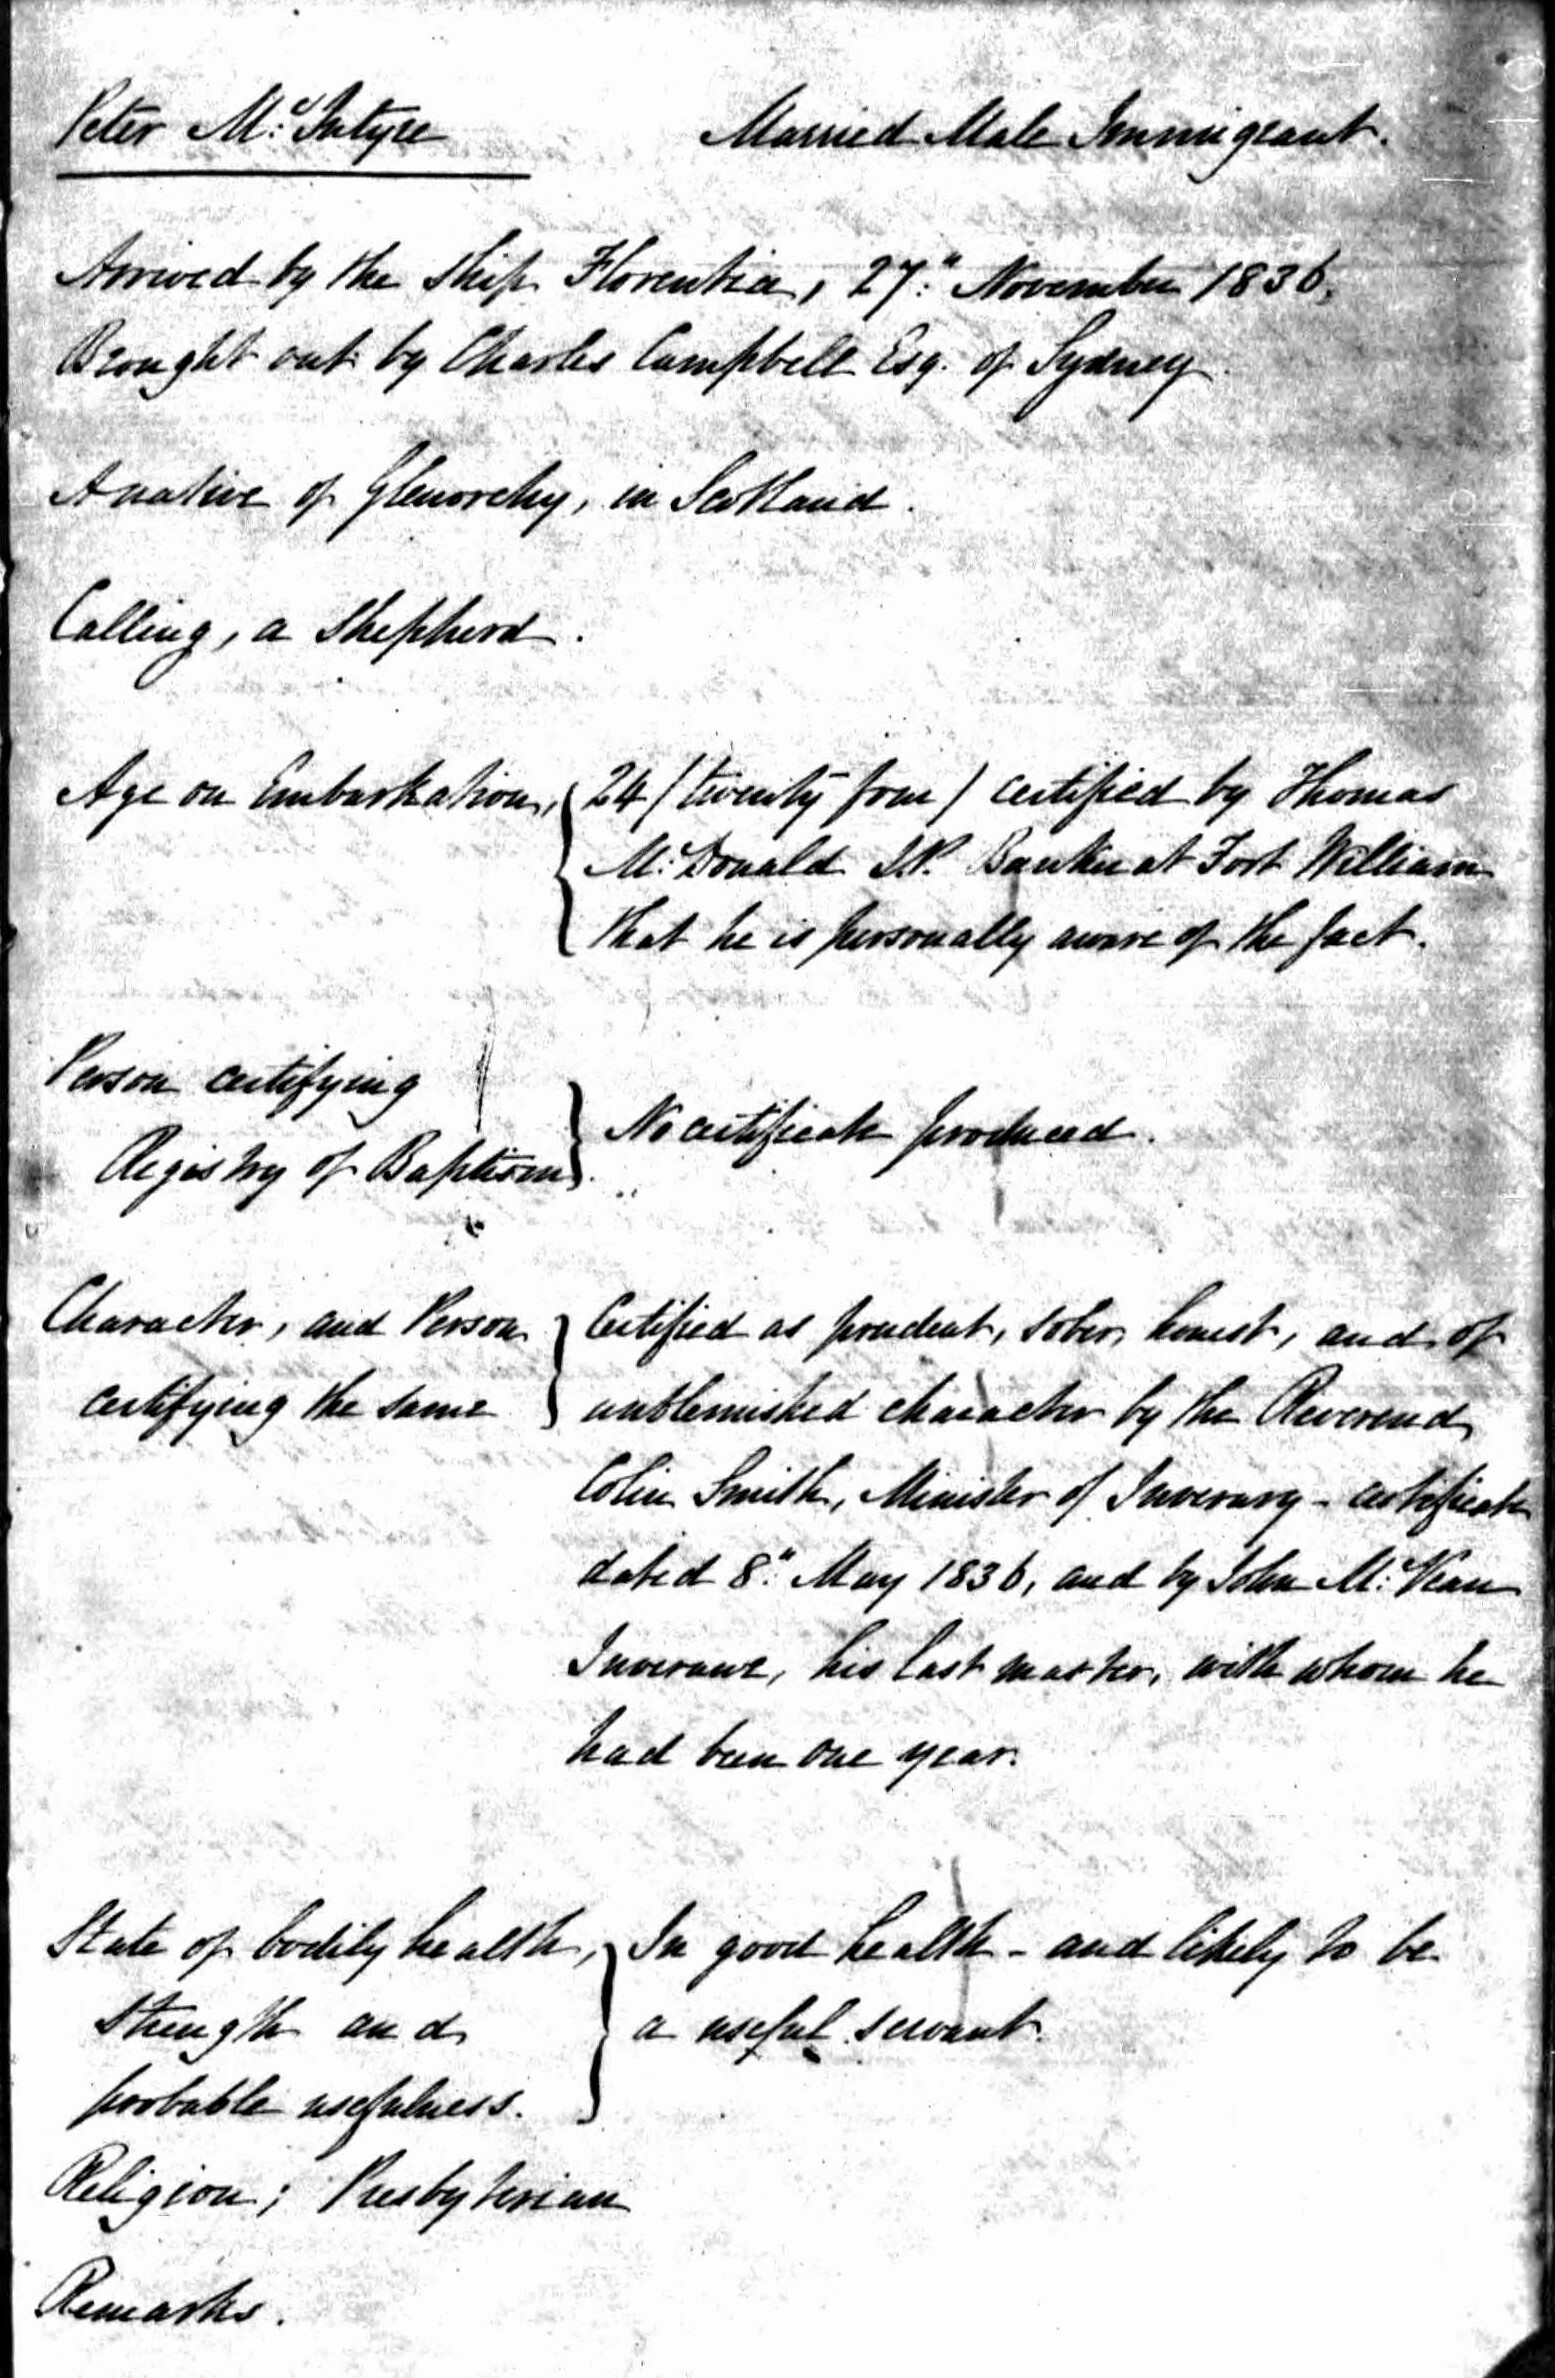 Peter Mc:Intyre Married Male Immigrant.
Arrived by the Ship Florentia, 27:" November 1836.
Brought out by Charles Campbell Esq. of Sydney.
A native of Glenorchy, in Scotland.
Calling, a Shepherd.
Age on Embarkation, 24 (twenty four) certified by Thomas
Mc:Donald J.P. Banker at Fort William
that he is personally aware of the fact.
Person certifying
Registry of Baptism. No certificate produced.
Character, and Person Certified as prudent, sober, honest, and of
certifying the same unblemished character by the Reverend
Colin Smith, Minister of Inverary - certificate
dated 8:" May 1836, and by John Mc:Vean
Inverawe, his last master, with whom he
had been one year.
State of bodily health, In good health - and likely to be
strength and a useful servant.
probable usefulness.
Religion; Presbyterian
Remarks.